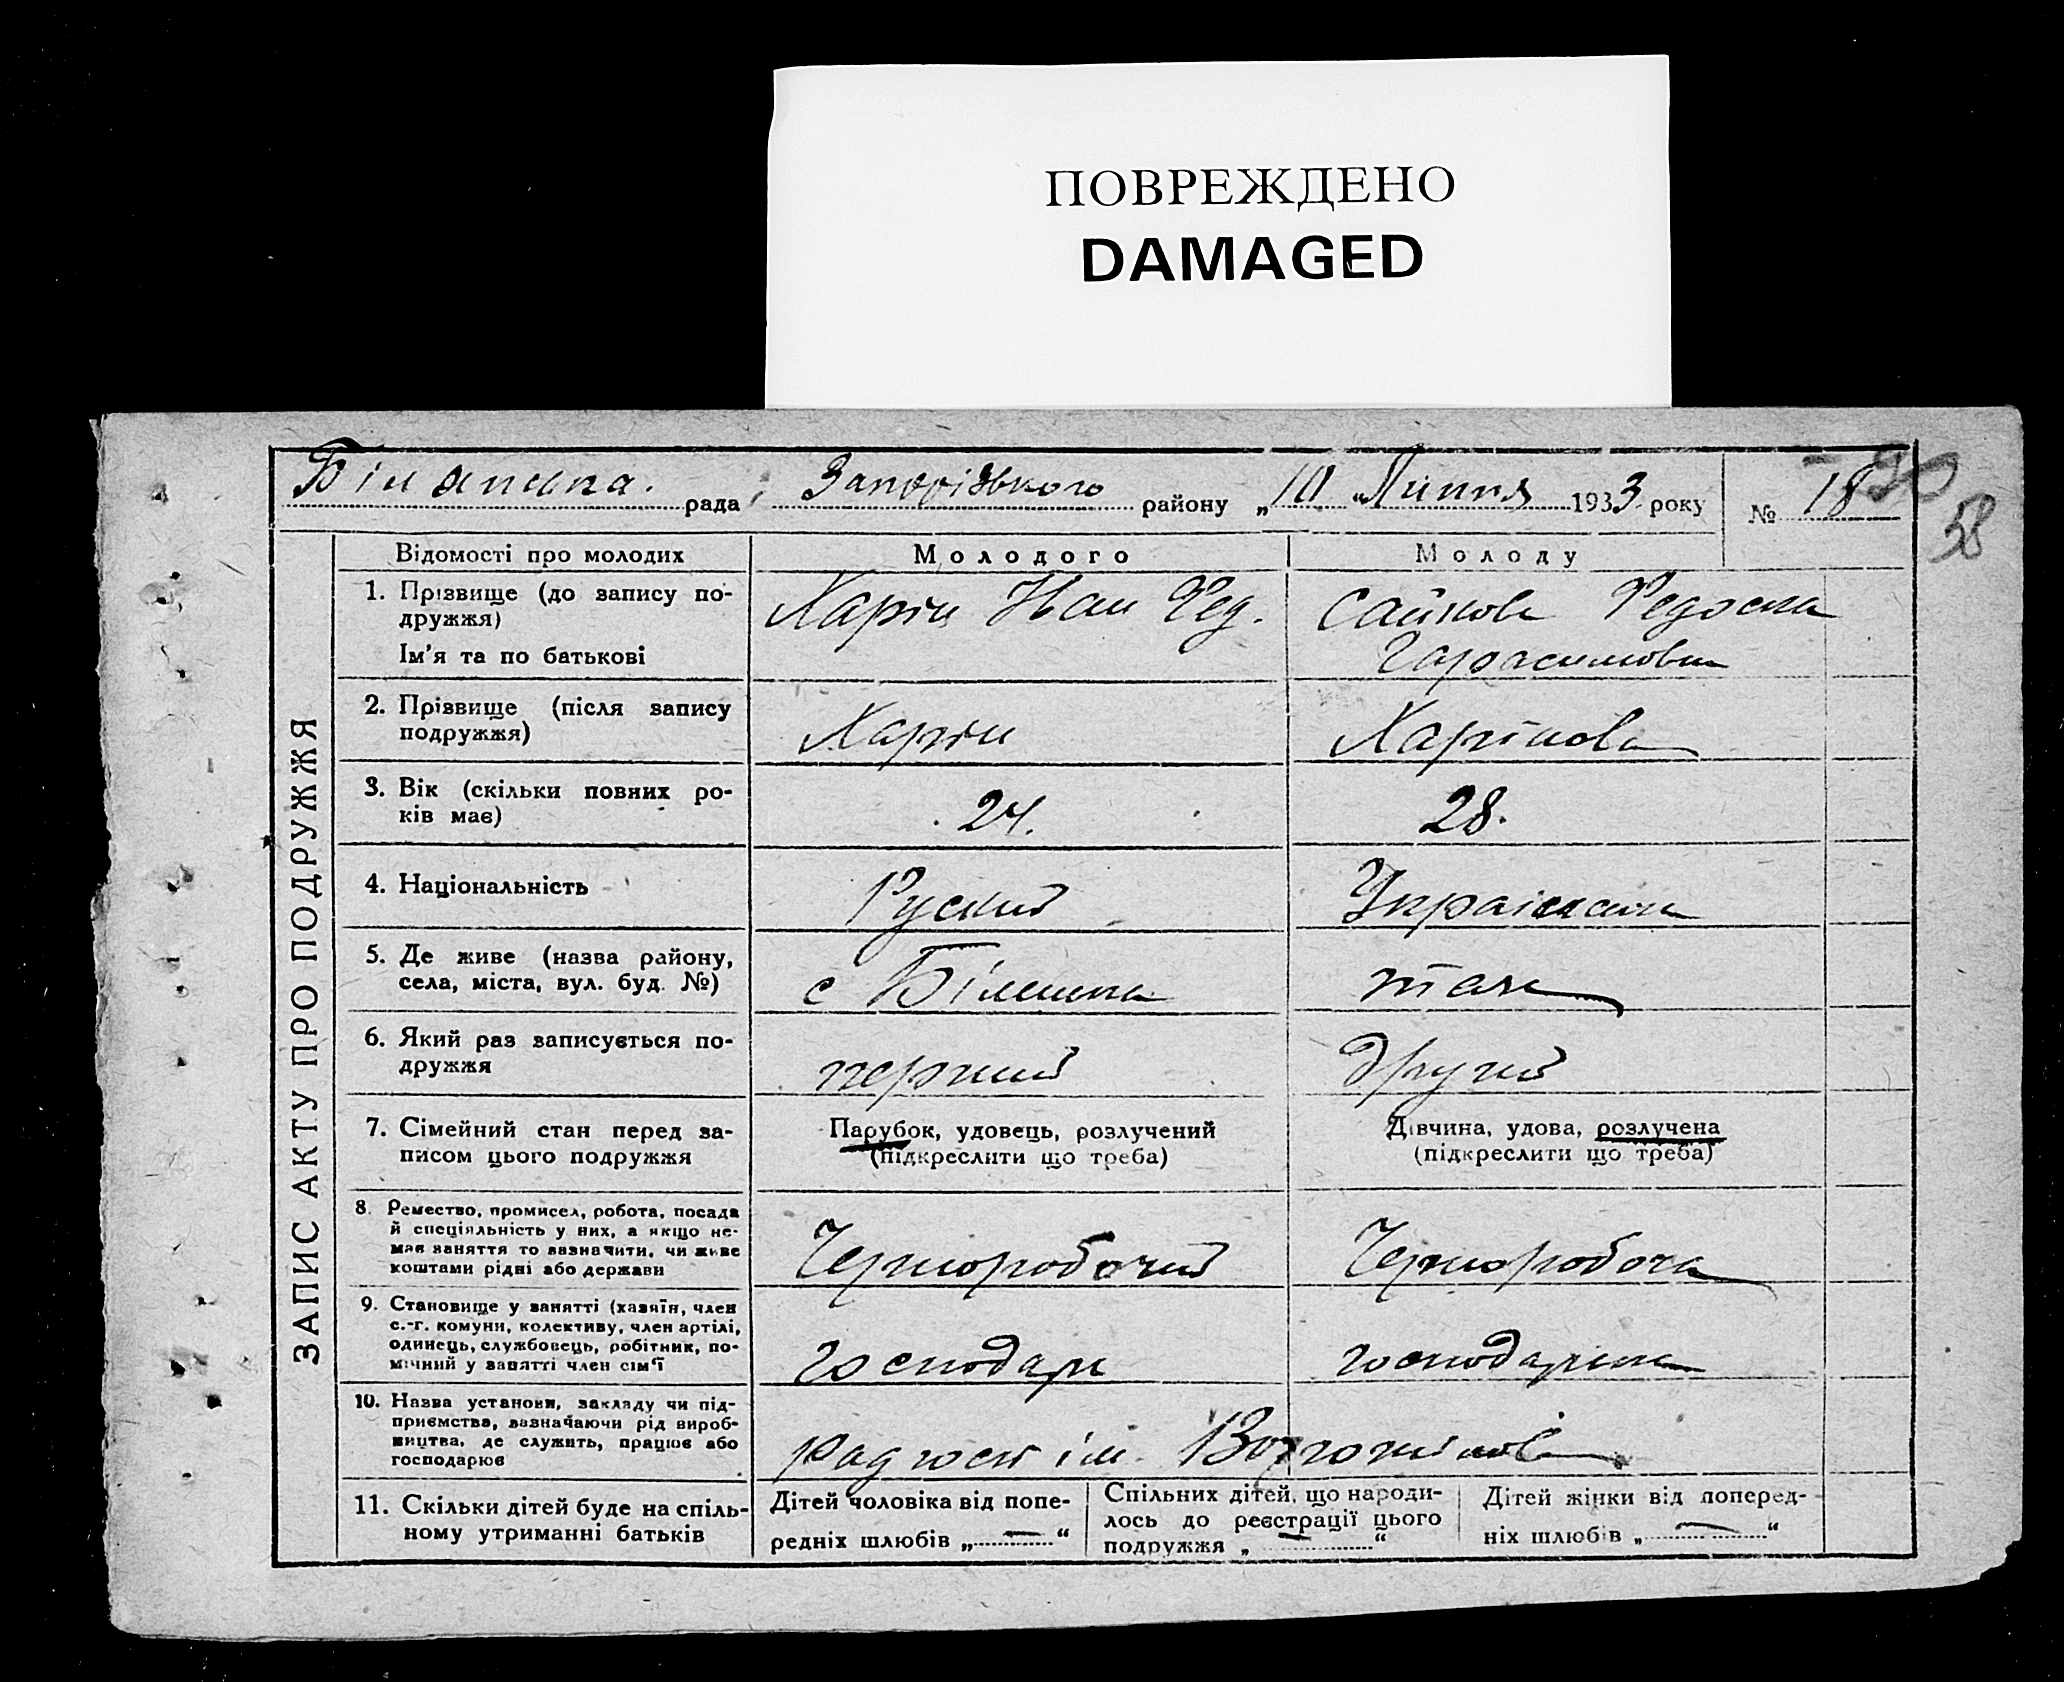 ПОВРЕЖДЕНО
DAMAGED
рада Запорізького району „10 " Липня 1933 року № 18
58
ЗАПИС АКТУ ПРО ПОДРУЖЖЯ
Відомості про молодих Молодого Молоду
1. Прізвище (до запису по-
дружжя)
Ім'я та по батькові
Харін Иван Фед.
Сайкова Федосия
Гарасимовна
2. Прізвище (після запису
подружжя)
Харін
Харінова
3. Вік (скільки повних ро-
ків має)
24.
28.
4. Національність
Руский
Українка
5. Де живе (назва району,
села, міста, вул. буд. №)
с Біленька
тож
6. Який раз записується по-
дружжя
перший
другий
7. Сімейний стан перед за-
писом цього подружжя
Парубок, удовець, розлучений
(підкреслити що треба)
Дівчина, удова, розлучена
(підкреслити що треба)
8. Ремество, промисел, робота, посада
й спеціяльність у них, а якщо не-
має заняття то зазначити, чи живе
коштами рідні або держави
Черноробочий
Черноробоча
9. Становище у занятті (хазяїн, член
с.-г. комуни, колективу, член артілі,
одинець, службовець, робітник, по-
мічний у занятті член сім'ї
господарь
господарька
10. Назва установи, закладу чи під-
приємства, зазначаючи рід вироб-
ництва, де служить, працює або
господарює
радгосп ім.
11. Скільки дітей буде на спіль-
ному утриманні батьків
Дітей чоловіка від попе-
редніх шлюбів „ — "
Спільних дітей, що народи-
лось до реєстрації цього
подружжя „ — "
Дітей жінки від поперед-
ніх шлюбів „ — "